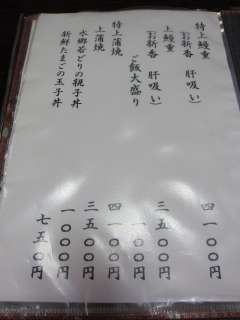 特上鰻重 四一〇〇円
（お新香 肝吸い）
上鰻重 三五〇〇円
（お新香 肝吸い）
ご飯大盛り 一〇〇円
特上蒲焼 四一〇〇円
上蒲焼 三五〇〇円
水郷若どりの親子丼 一〇〇〇円
新鮮たまごの玉子丼 七五〇円